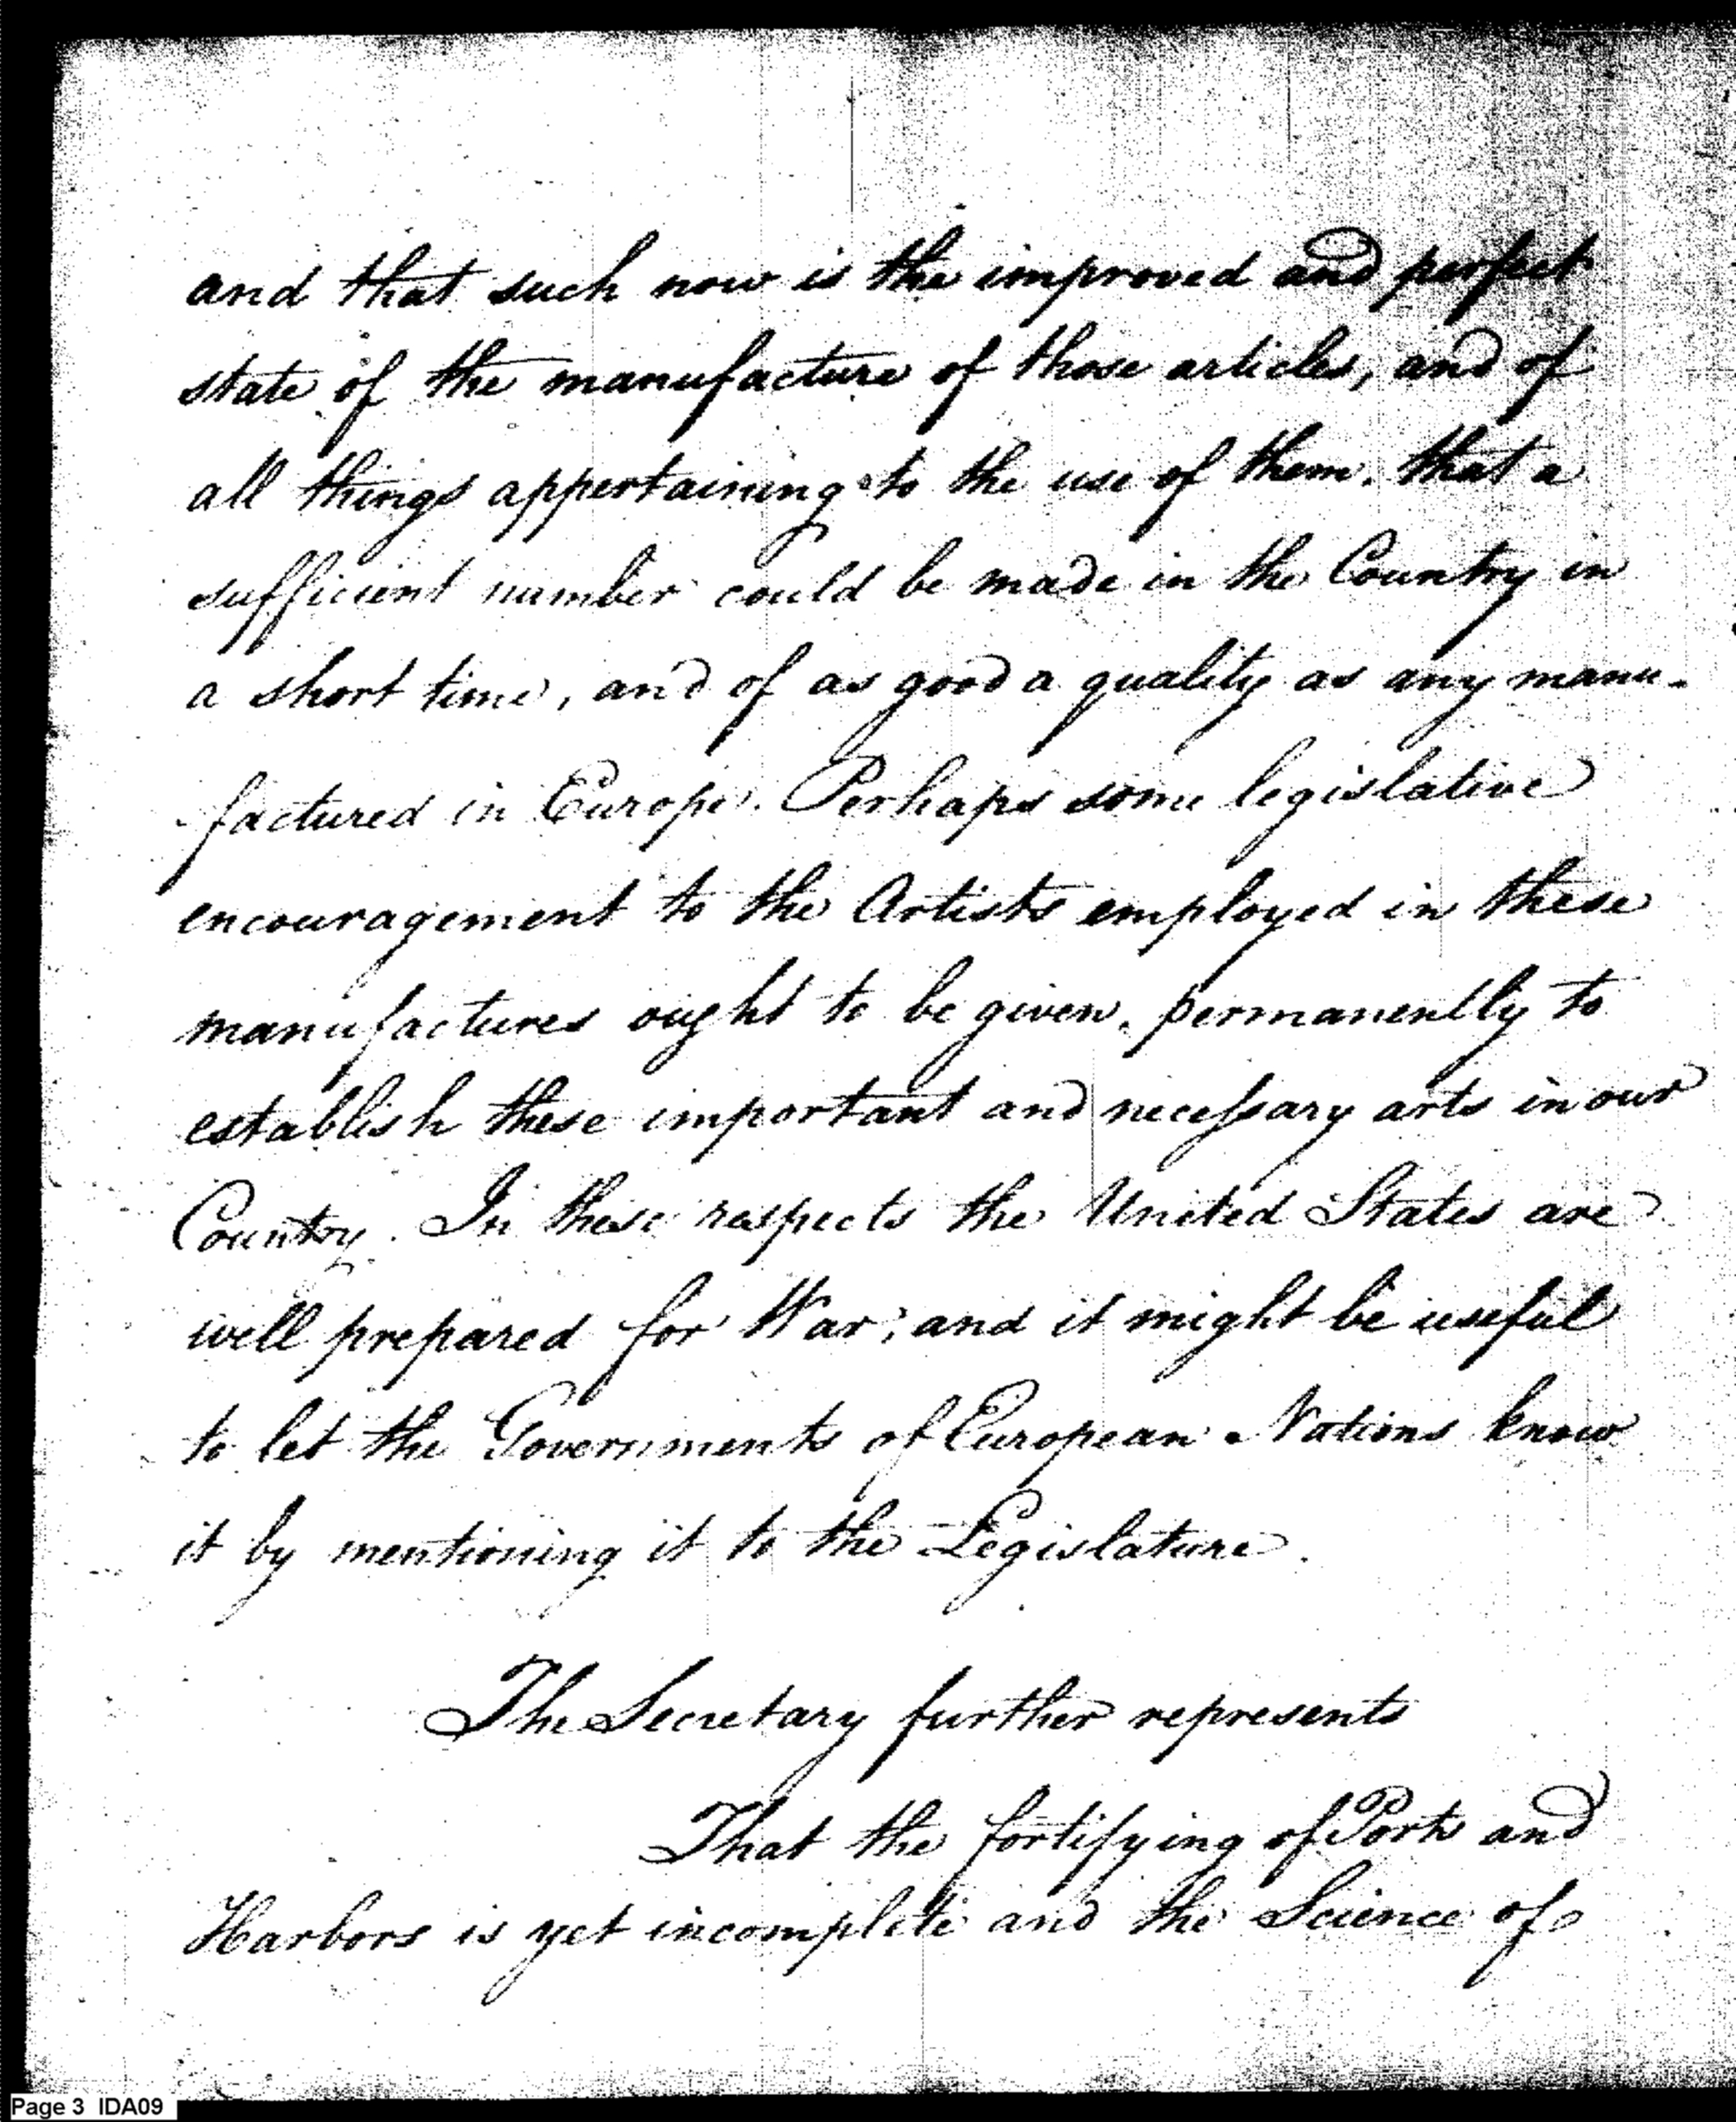 and that such now is the improved and perfect
state of the manufacture of those articles, and of
all things appertaining to the use of them, that a
sufficient number could be made in the Country in
a short time, and of as good a quality as any manu-
-factured in Europe. Perhaps some legislative
encouragement to the Artists employed in these
manufactures ought to be given, permanently to
establish these important and neceſsary arts in our
Country. In these respects the United States are
well prepared for War; and it might be useful
to let the Governments of European Nations know
it by mentioning it to the Legislature.
The Secretary further represents
That the fortifying of Ports and
Harbors is yet incomplete and the Science of
Page 3 IDA09